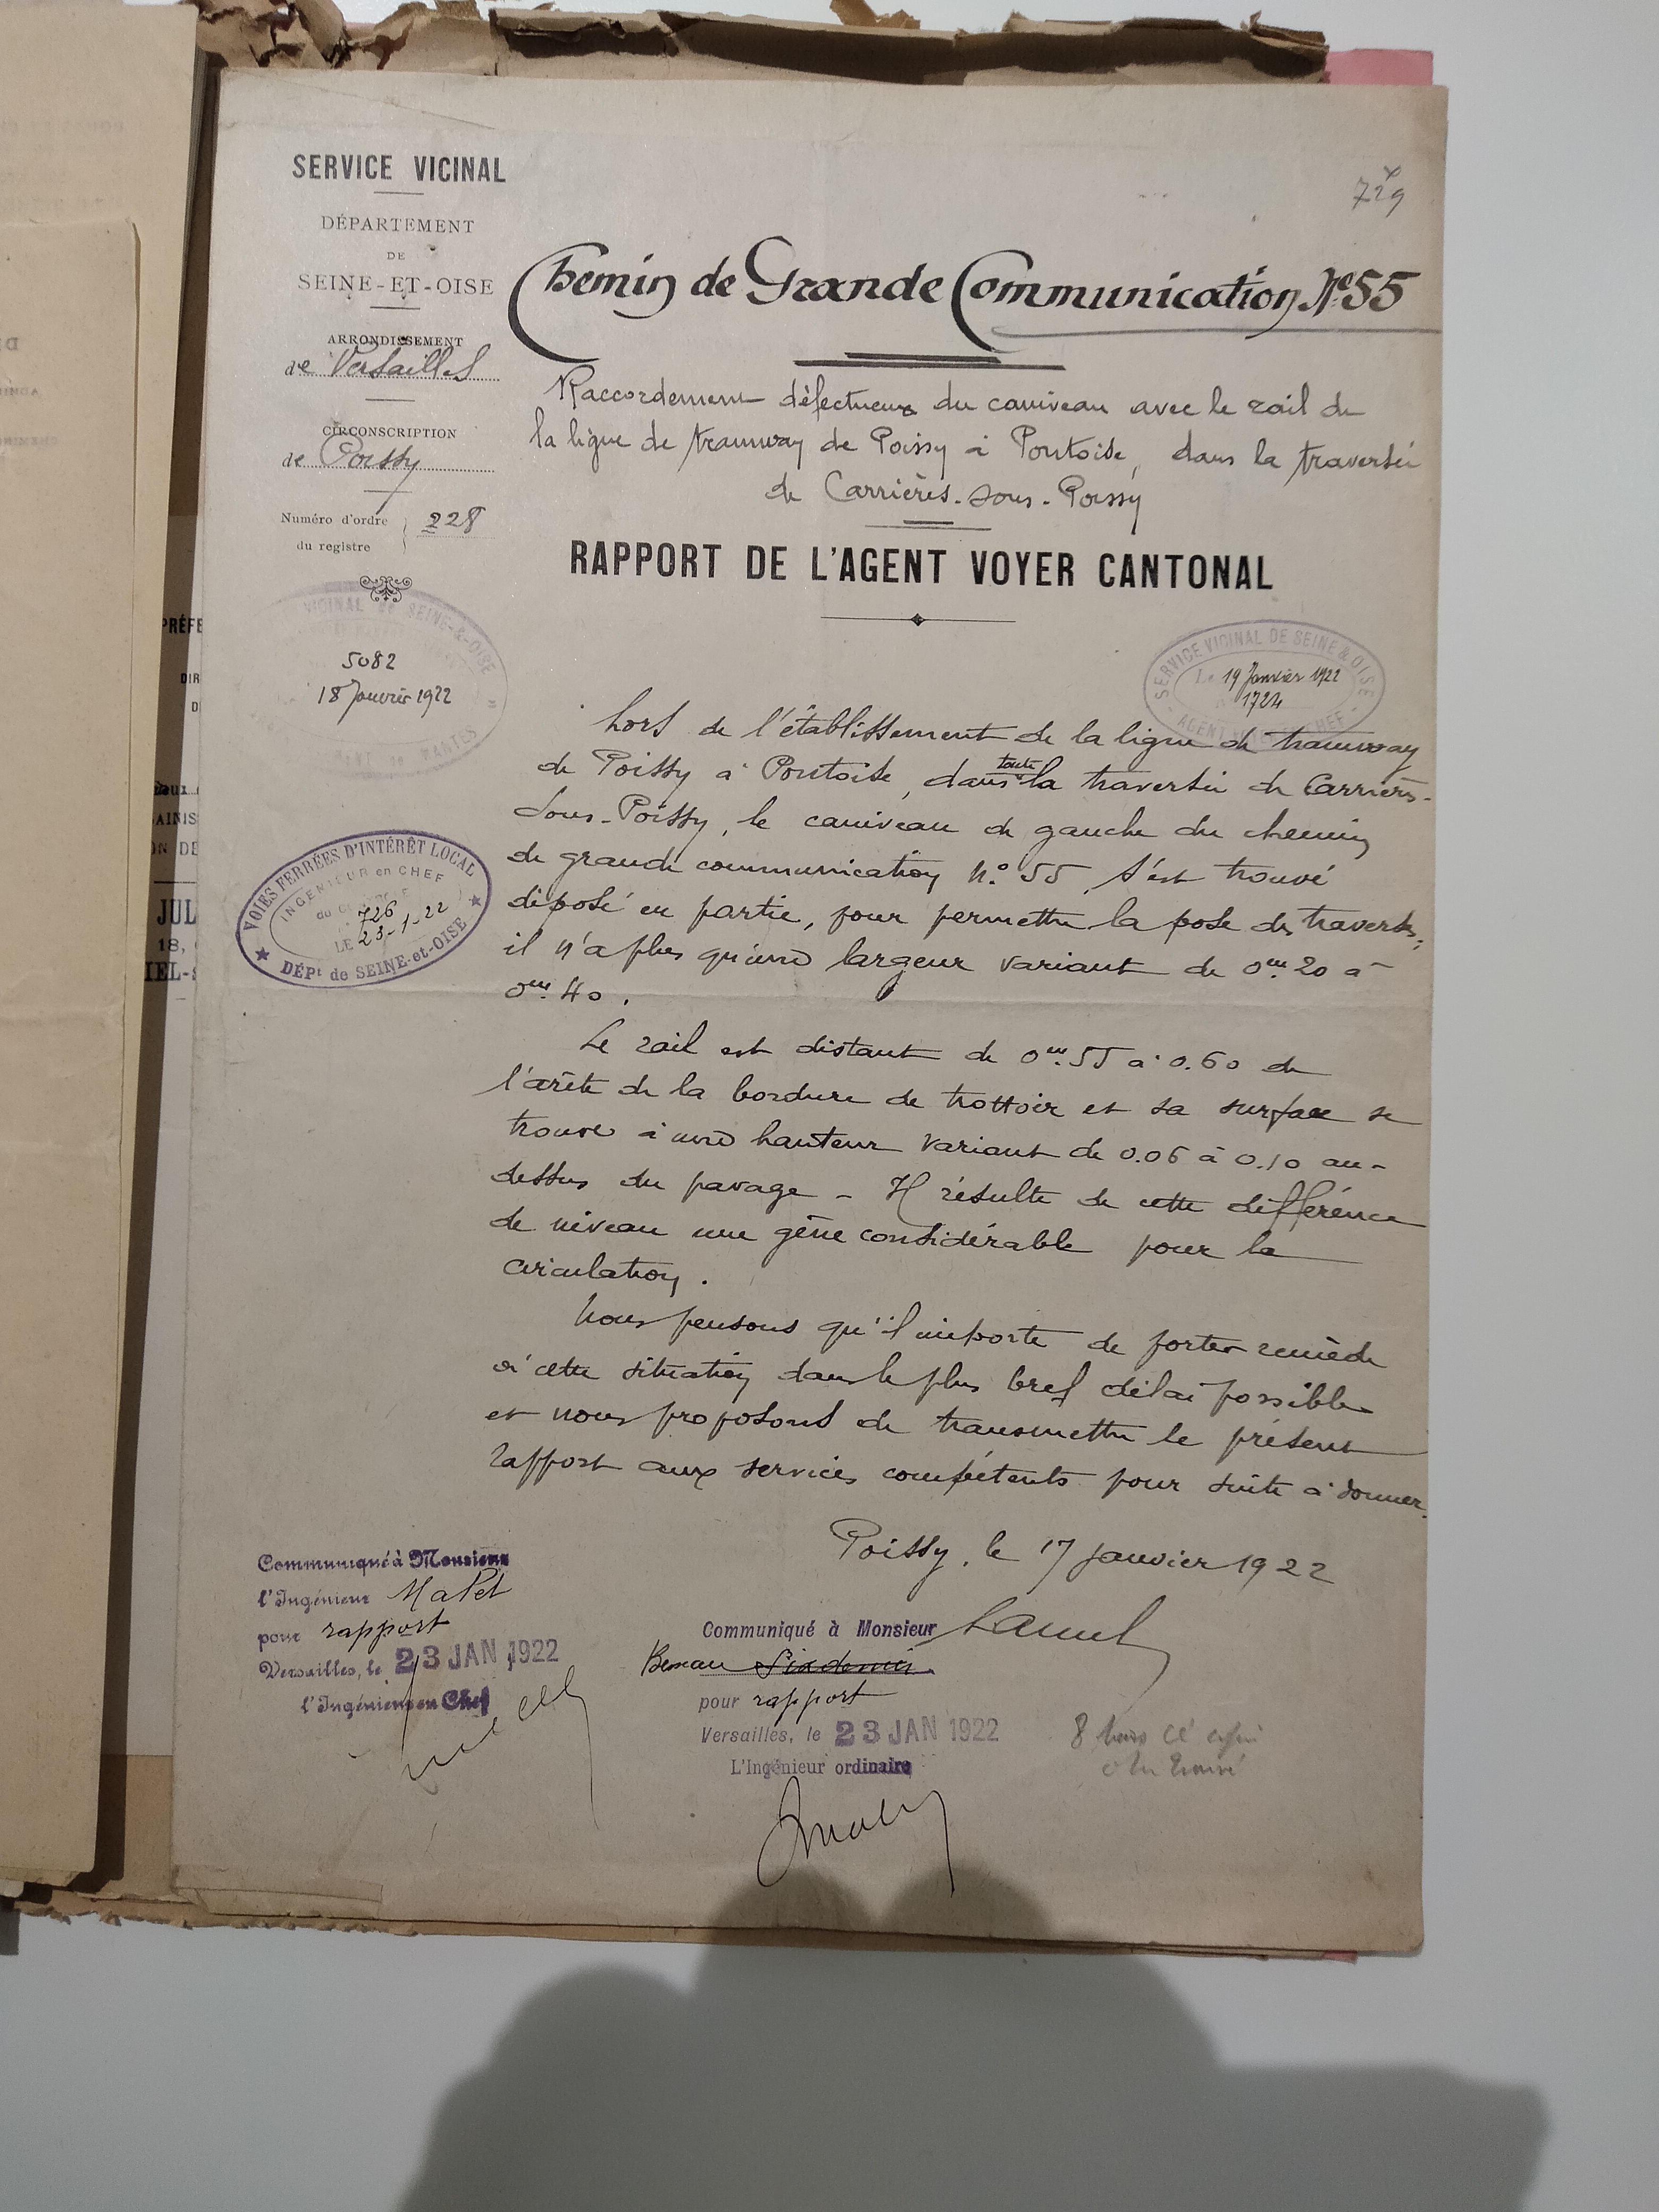 SERVICE VICINAL
DÉPARTEMENT
DE
SEINE-ET-OISE
ARRONDISSEMENT
de Versailles
CIRCONSCRIPTION
de Poissy
Numéro d'ordre
du registre
228
729
Chemin de Grande Communication N° 55
Raccordement défectueux du caniveau avec le rail de
la ligne de tramway de Poissy à Pontoise, dans la traversée
de Carrières-sous-Poissy
RAPPORT DE L'AGENT VOYER CANTONAL
VICINAL de SEINE-&-OISE
5082
18 Janvier 1922
MANTES
SERVICE VICINAL DE SEINE & OISE
Le 19 Janvier 1922
1724
AGENT CHEF
VOIES FERRÉES D'INTÉRÊT LOCAL
INGÉNIEUR en CHEF
726
LE 23-1-22
DÉPt de SEINE-et-OISE
Lors de l'établissement de la ligne de tramway
de Poissy à Pontoise, dans toute la traversée de Carrières-
sous-Poissy, le caniveau de gauche du chemin
de grande communication n.° 55, s'est trouvé
déposé en partie, pour permettre la pose des traverses,
il n'a plus qu'une largeur variant de 0m.20 à
0m.40.
Le rail est distant de 0m.55 à 0.60 de
l'arête de la bordure de trottoir et sa surface se
trouve à une hauteur variant de 0.06 à 0.10 au-
dessus du pavage - Il résulte de cette différence
de niveau une gêne considérable pour la
circulation.
Nous pensons qu'il importe de porter remède
à cette situation dans le plus bref délai possible
et nous proposons de transmettre le présent
rapport aux services compétents pour suite à donner.
Poissy, le 17 janvier 1922
Communiqué à Monsieur
l'Ingénieur Malet
pour rapport
Versailles, le 23 JAN 1922
l'Ingénieur en Chef
Communiqué à Monsieur
pour rapport
Versailles, le 23 JAN 1922
L'Ingénieur ordinaire
PRÉFE
DIR
AINIS
JUL
18,